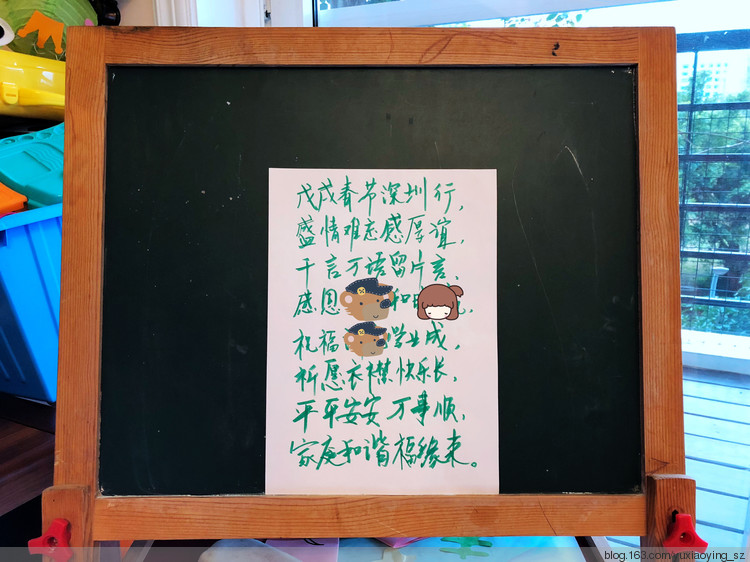 戊戌春节深圳行，
盛情难忘感厚谊，
千言万语留片言，
感恩 和
祝福 学业成，
祈愿衣襟快乐长，
平平安安万事顺，
家庭和谐福缘来。
blog.163.com/yuxiaoying_sz